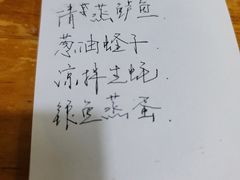 清蒸鲈鱼
葱油蛏子
凉拌生蚝
银鱼蒸蛋